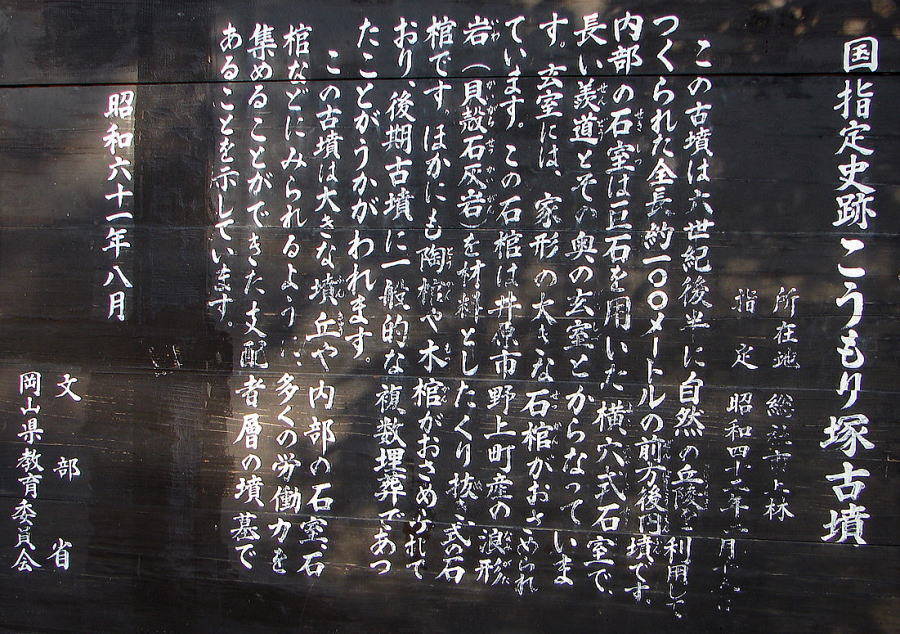 国指定史跡 こうもり塚古墳
所在地 総社市上林
指定 昭和四十 年 月
この古墳は六世紀後半に自然の丘陵を利用して
つくられた全長約一〇〇メートルの前方後円墳です。
内部の石室は巨石を用いた横穴式石室で、
長い羨道とその奥の玄室とからなっていま
す。玄室には、家形の大きな石棺がおさめられ
ています。この石棺は井原市野上町産の浪形
岩(貝殻石灰岩)を材料としたくり抜き式の石
棺です。ほかにも陶棺や木棺がおさめられて
おり、後期古墳に一般的な複数埋葬であっ
たことがうかがわれます。
この古墳は大きな墳丘や内部の石室、石
棺などにみられるように、多くの労働力を
集めることができた支配者層の墳墓で
あることを示しています。
昭和六十一年八月
文部省
岡山県教育委員会